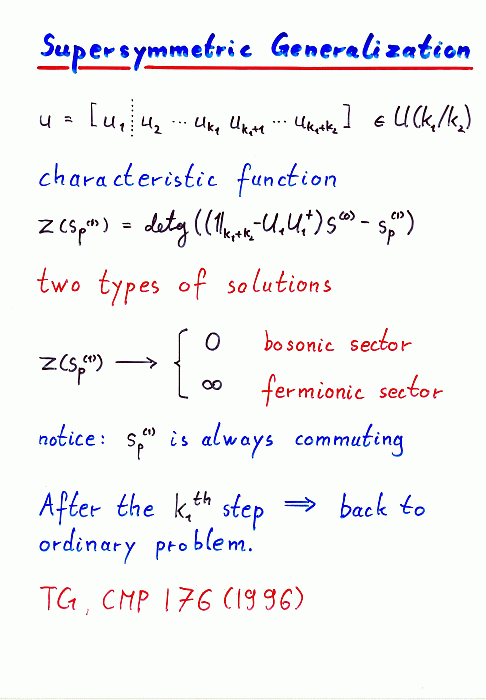 Supersymmetric Generalization
u = [u₁ ⋮ u₂ ⋯ u_{k₁} u_{k₁+1} ⋯ u_{k₁+k₂}] ∈ U(k₁/k₂)
characteristic function
z(s_p^{(1)}) = detg((𝟙_{k₁+k₂} - U₁U₁⁺)s^{(0)} - s_p^{(1)})
two types of solutions
z(s_p^{(1)}) ⟶ { 0 bosonic sector
∞ fermionic sector
notice: s_p^{(1)} is always commuting
After the k₁^{th} step ⟹ back to
ordinary problem.
TG, CMP 176 (1996)